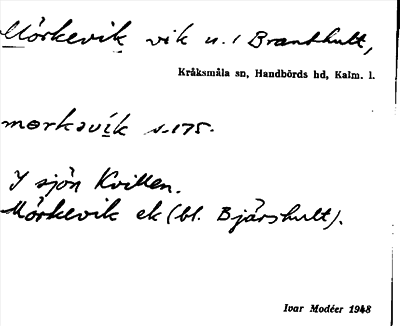 Mörkevik vik n. i Branthult,
Kråksmåla sn, Handbörds hd, Kalm. l.
mørkəvík s. 175.
I sjön Kvillen.
Mörkevik ek (bl. Bjärshult).
Ivar Modéer 1948